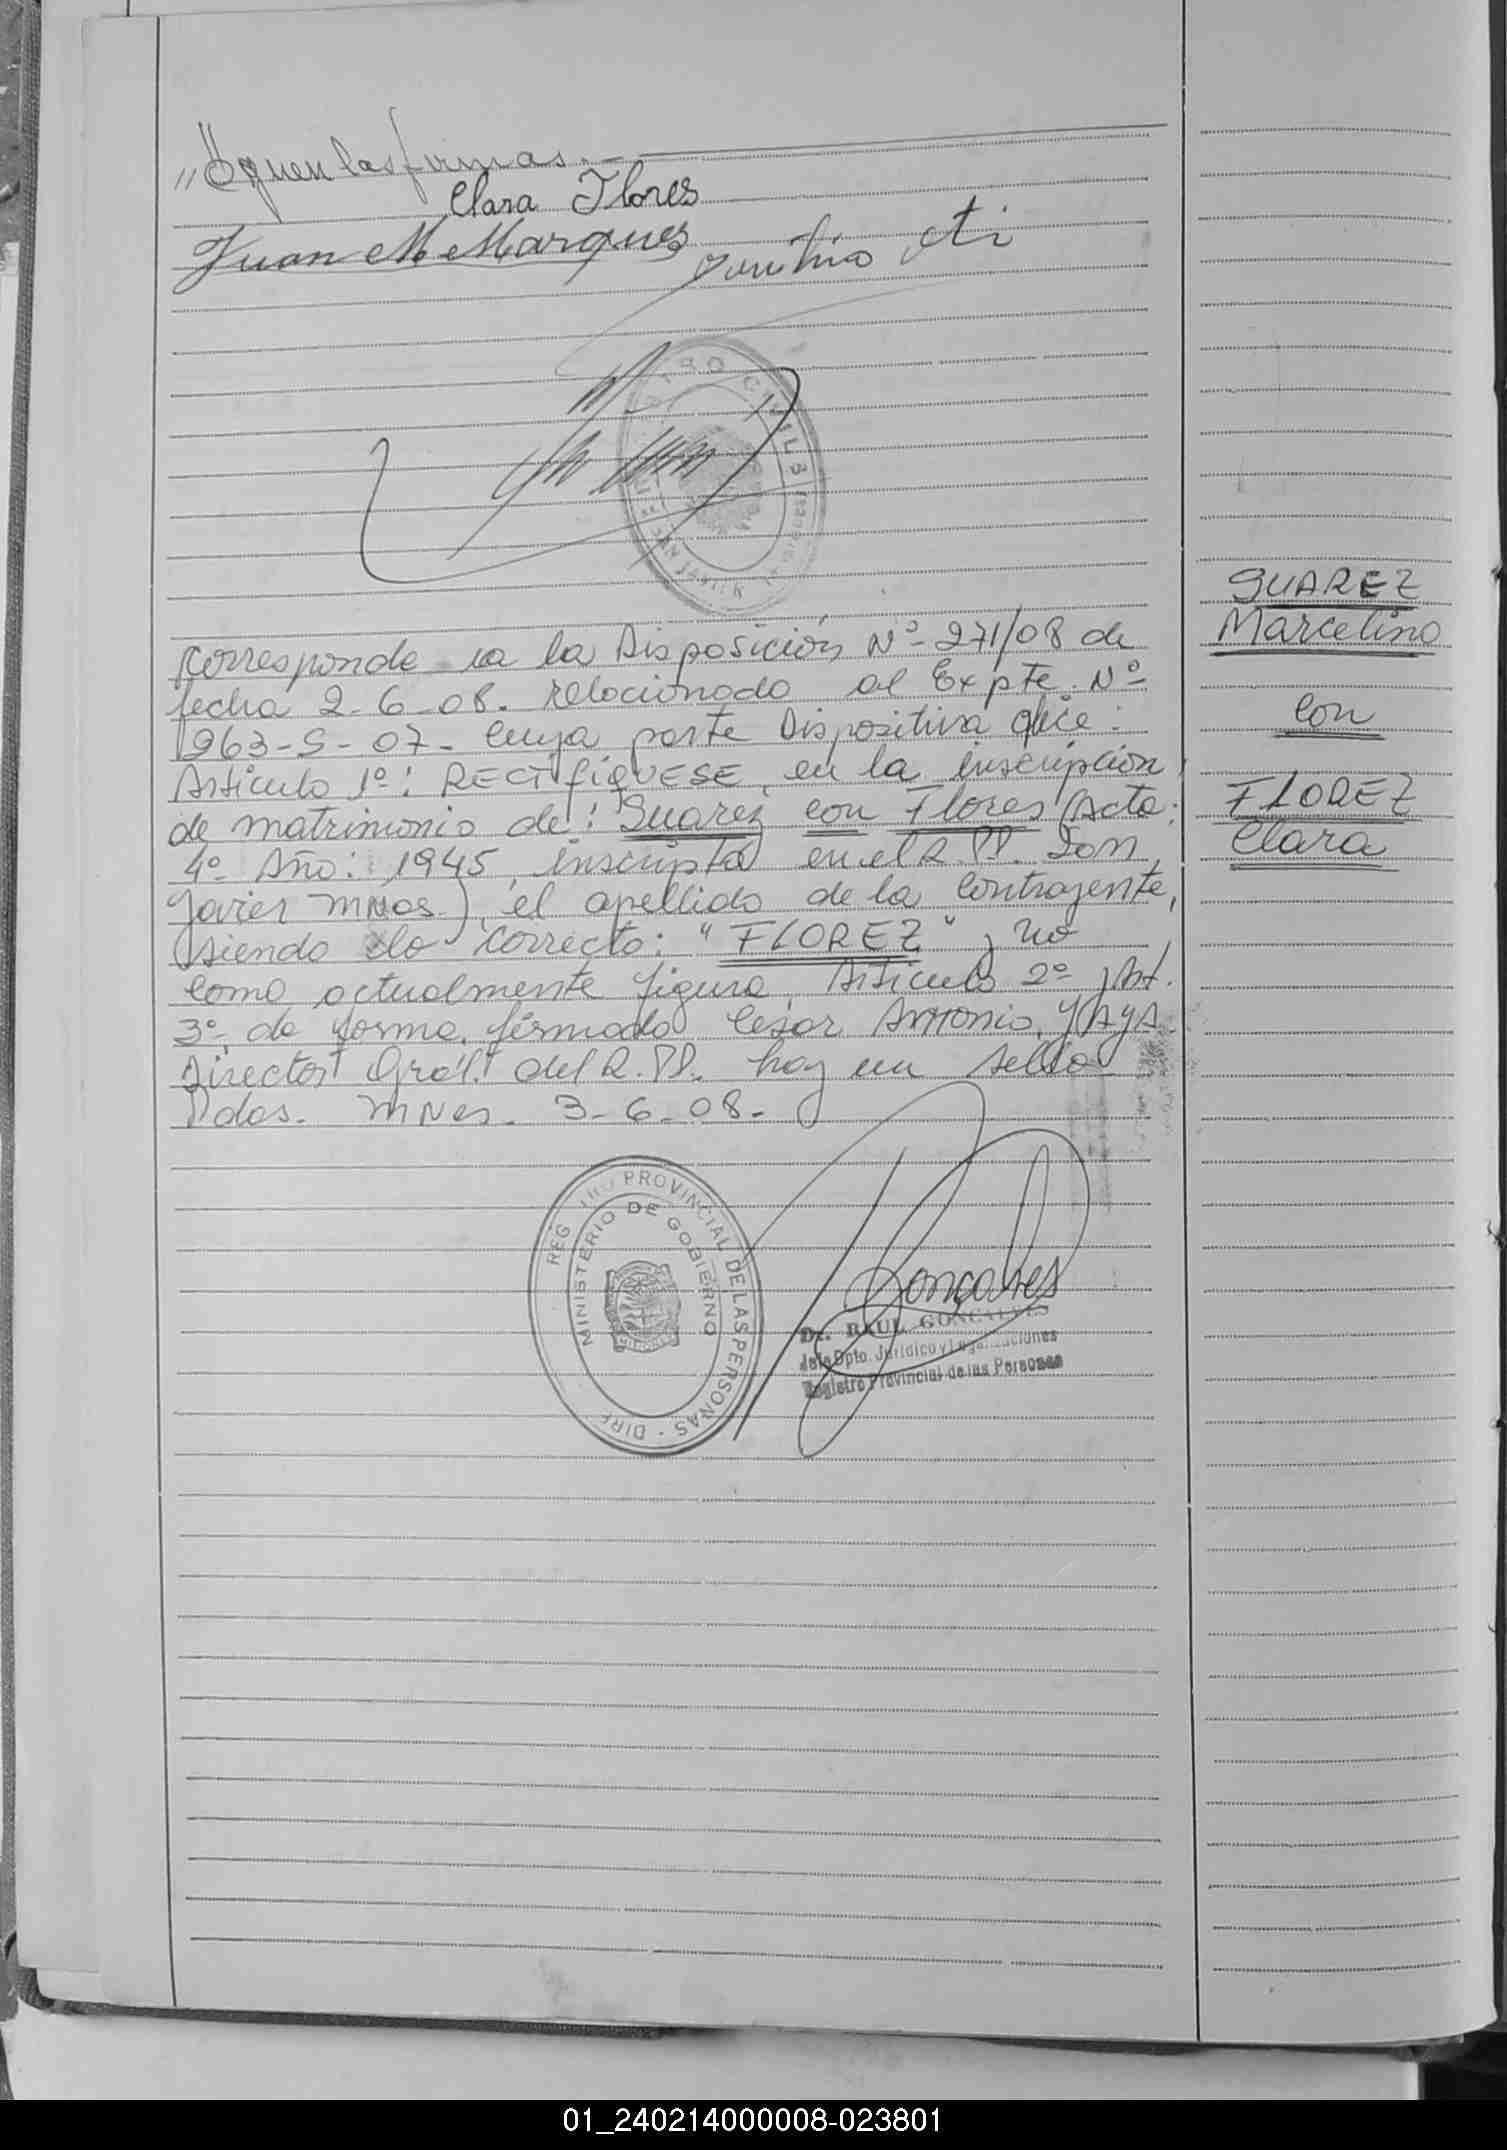 ,, Siguen las firmas.—
Clara Flores
Juan M Marques
REGISTRO CIVIL
SAN JAVIER
Corresponde a la Disposición Nº 271/08 de
fecha 2-6-08. relacionado al Expte. Nº
1963-S-07- Cuya parte Dispositiva dice:
Artículo 1º: RECTIFIQUESE, en la inscripción
de matrimonio de: Suarez con Flores (Acta:
4º Año: 1945, inscripta en el R.PP. San
Javier Mnes), el apellido de la contrayente,
siendo lo correcto: "FLOREZ", no
como actualmente figura, Artículo 2º, Art.
3º, de forma, firmado Cesar Antonio YAYA
Director Gral. del R.PP. hay un sello
Pdas. MNes. 3-6-08-
REG TRO PROVINCIAL DE LAS PERSONAS - DIRE
MINISTERIO DE GOBIERNO
Goncalves
Dr. RAUL GONCALVES
Jefe Dpto. Jurídico y Legalizaciones
Registro Provincial de las Personas
SUAREZ
Marcelino
Con
FLOREZ
Clara
01_240214000008-023801